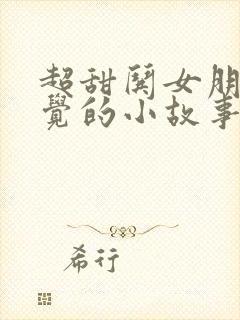 超甜鬨女朋
覺的小故事
希行